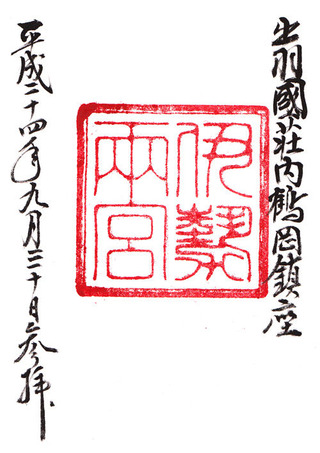 出羽國荘内鶴岡鎮座
伊勢
両宮
平成二十四年九月二十日参拝